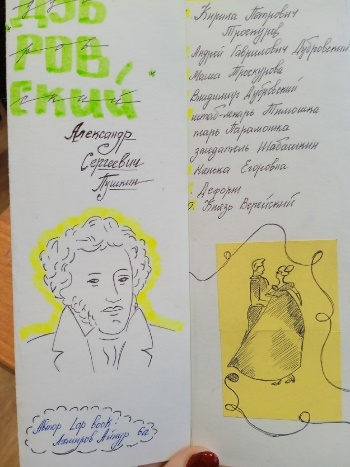 ДУБ
РОВ,
СКИЙ
Александр
Сергеевич
Пушкин
Автор Lap book:
Ахмиров Айнур 6а
Кирила Петрович
Троекуров
Андрей Гаврилович Дубровский
Маша Троекурова
Владимир Дубровский
штаб-лекарь Тимошка
писарь Парамошка
заседатель Шабашкин
Нянька Егоровна
Дефорж
Князь Верейский